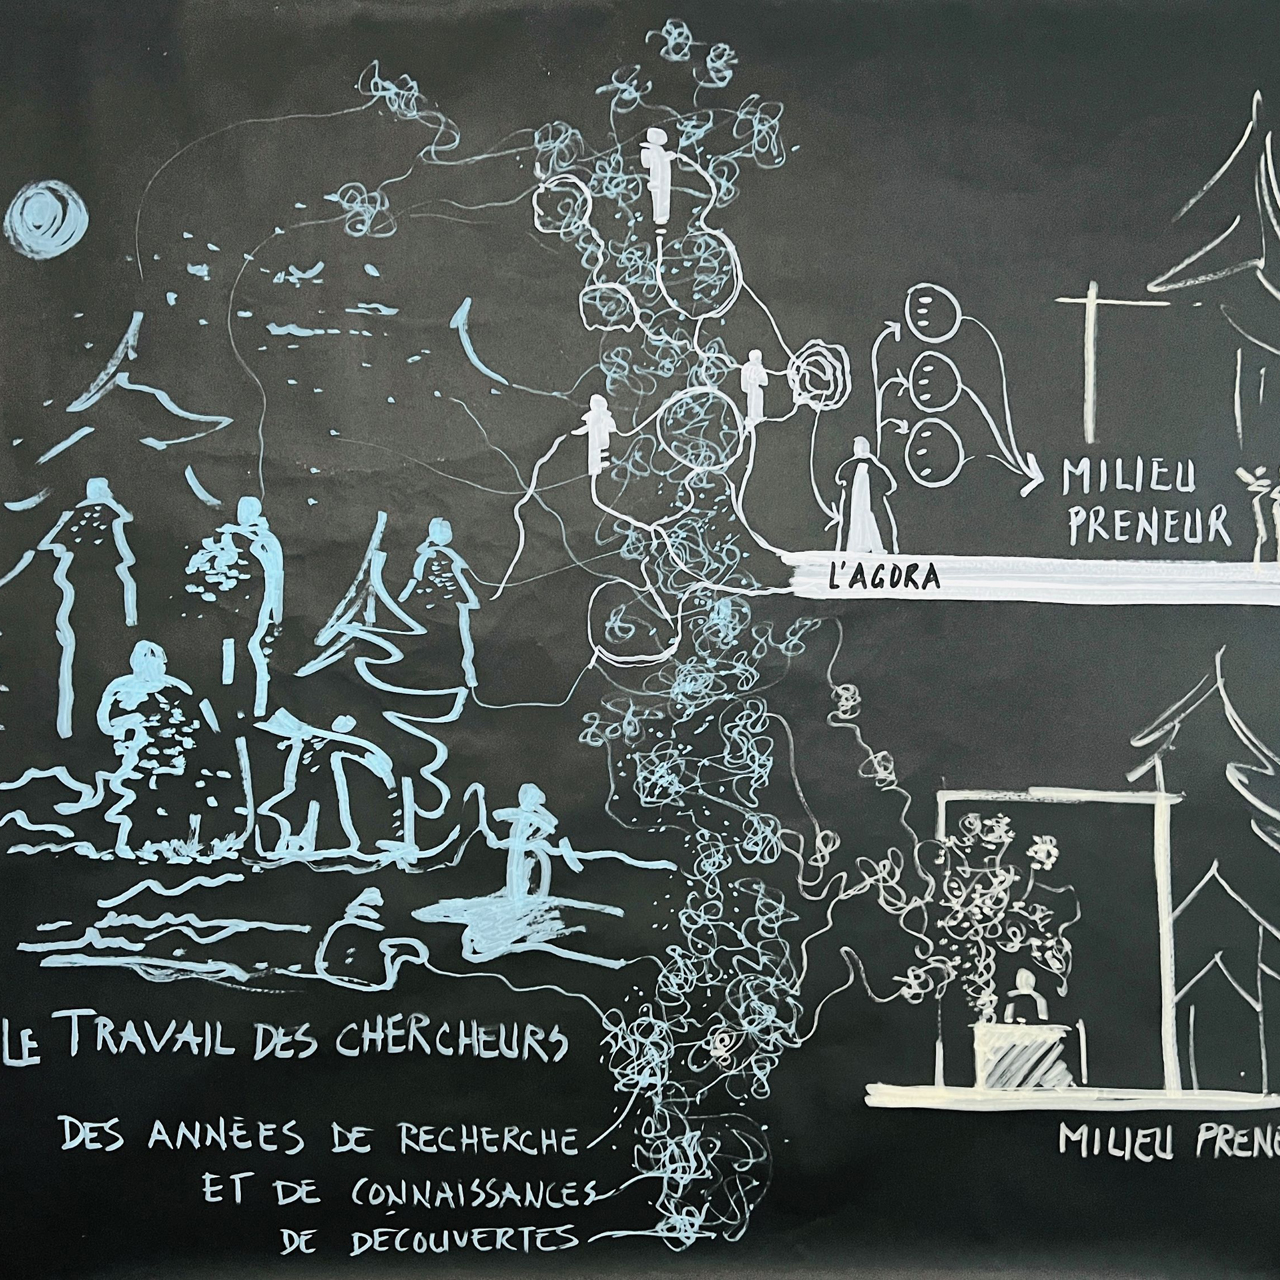 MILIEU
PRENEUR
L'AGORA
LE TRAVAIL DES CHERCHEURS
DES ANNÉES DE RECHERCHE
ET DE CONNAISSANCES
DE DÉCOUVERTES
MILIEU PRENE